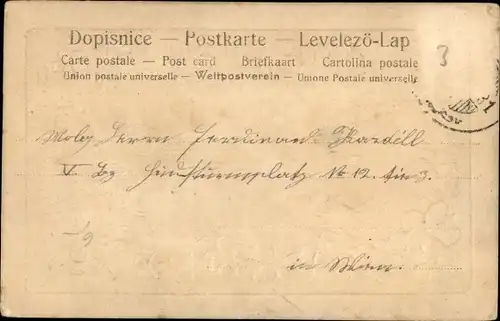 Dopisnice — Postkarte — Levelezö-Lap
Carte postale — Post card Briefkaart — Cartolina postale
Union postale universelle — Weltpostverein — Unione Postale universelle
3
Herrn Ferdinand
V. Bz Hundsturmplatz No 12.
in Wien.